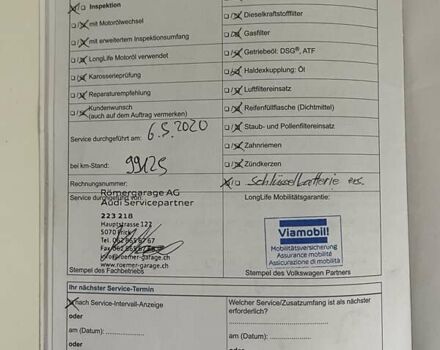 Inspektion
mit Motorölwechsel
mit erweitertem Inspektionsumfang
LongLife Motoröl verwendet
Karosserieprüfung
Reparaturempfehlung
Kundenwunsch
(auch auf dem Auftrag vermerken)
Service durchgeführt am: 6.5.2020
bei km-Stand: 99125
Rechnungsnummer:
Service durchgeführt von:
Römergarage AG
Audi Servicepartner
223 218
Hauptstrasse 122
5070 Frick
Tel. 062 865 67 67
Fax 062 865
info@roemer-garage.ch
www.roemer-garage.ch
Stempel des Fachbetriebs
Dieselkraftstofffilter
Gasfilter
Getriebeöl: DSG®, ATF
Haldexkupplung: Öl
Luftfiltereinsatz
Reifenfüllflasche (Dichtmittel)
Staub- und Pollenfiltereinsatz
Zahnriemen
Zündkerzen
Schlüsselbatterie ers.
LongLife Mobilitätsgarantie:
Viamobil!
Mobilitätsversicherung
Assurance mobilité
Assicurazione di mobilità
Stempel des Volkswagen Partners
Ihr nächster Service-Termin
nach Service-Intervall-Anzeige
oder
am (Datum):
oder
Welcher Service/Zusatzumfang ist als nächster
erforderlich?
am (Datum):
oder